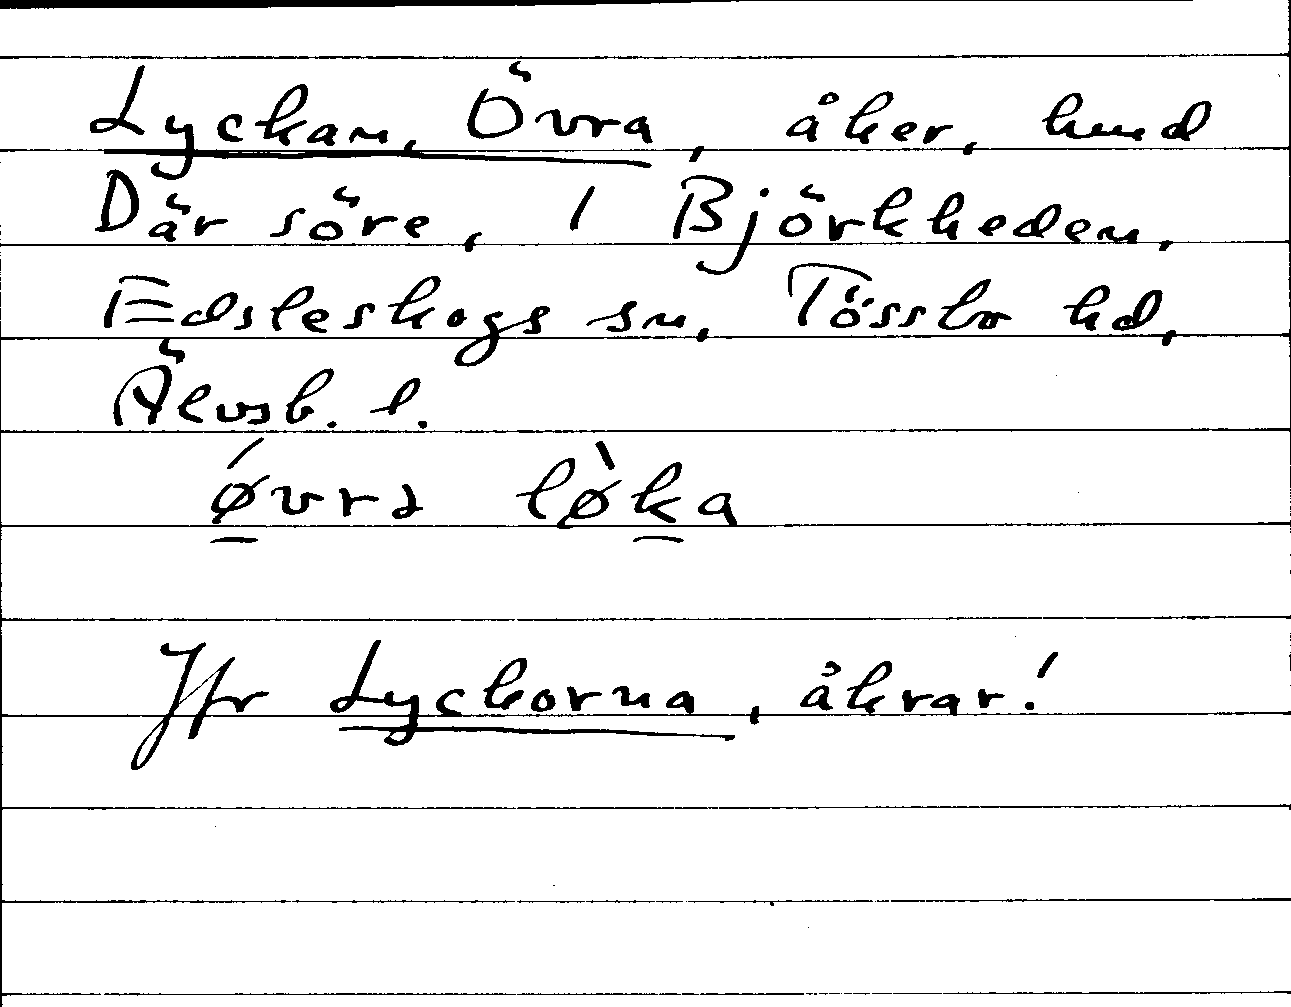 Lyckan, Övra, åker, hmd
Där söre, 1 Björkheden,
Edsleskogs sn, Tössbo hd,
Älvsb. l.
ǿvrə lø̀ka
Jfr Lyckorna, åkrar!